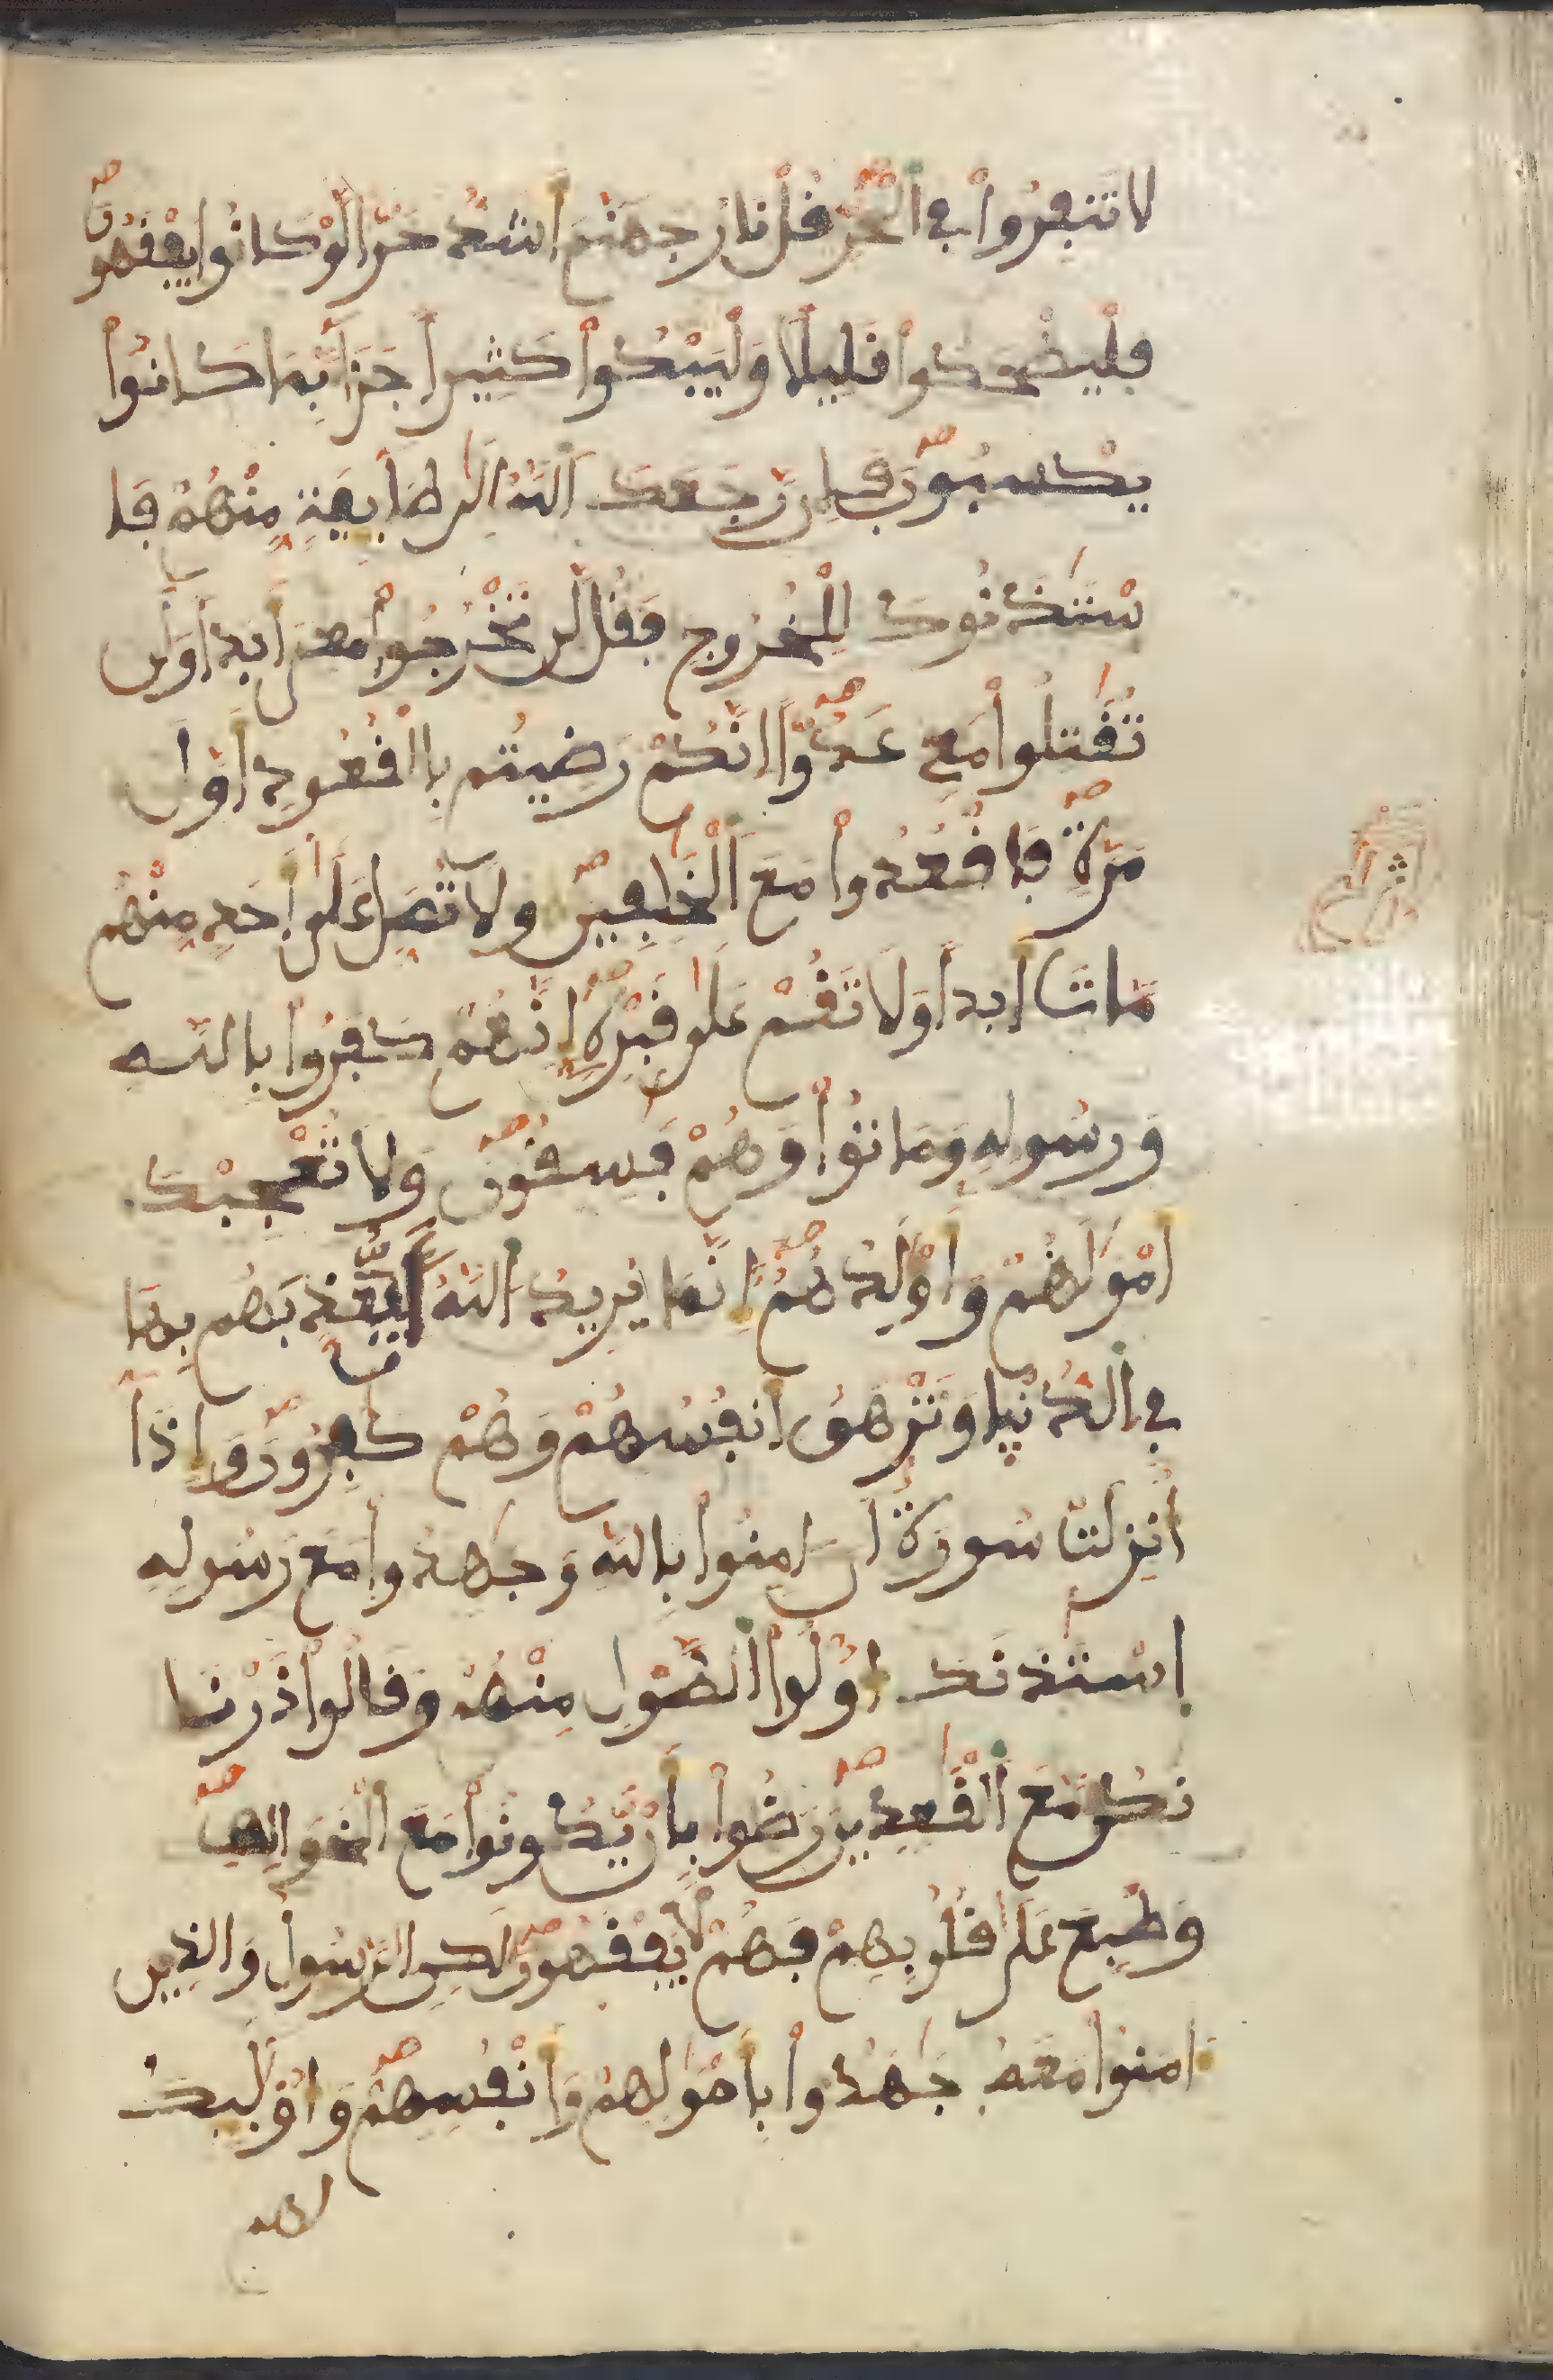 لَا تَنفِرُواْ فِي اَلْحَرِّ قُلْ نَارُ جَهَنَّمَ أَشَدُّ حَرّاً لَّوْ كَانُواْ يَفْقَهُونَ
فَلْيَضْحَكُواْ قَلِيلًا وَلْيَبْكُواْ كَثِيراً جَزَآءَۢ بِمَا كَانُواْ
يَكْسِبُونَ فَإِن رَّجَعَكَ اَللَّهُ إِلَى طَآئِفَةٍ مِّنْهُمْ فَا
سْتَـٔذَنُوكَ لِلْخُرُوجِ فَقُل لَّن تَخْرُجُواْ مَعِيَ أَبَداً وَلَن
تُقَٰتِلُواْ مَعِي عَدُوّاً اِنَّكُمْ رَضِيتُم بِالْقُعُودِ أَوَّلَ
مَرَّةٍ فَاقْعُدُواْ مَعَ اَلْخَٰلِفِينَ وَلَا تُصَلِّ عَلَىٰ أَحَدٍ مِّنْهُم
مَّاتَ أَبَداً وَلَا تَقُمْ عَلَىٰ قَبْرِهِ إِنَّهُمْ كَفَرُواْ بِاللَّهِ
وَرَسُولِهِ وَمَاتُواْ وَهُمْ فَٰسِقُونَ وَلَا تُعْجِبْكَ
أَمْوَٰلُهُمْ وَأَوْلَٰدُهُمْ إِنَّمَا يُرِيدُ اَللَّهُ أَن يُّعَذِّبَهُم بِهَا
فِي اَلدُّنْيَا وَتَزْهَقَ أَنفُسُهُمْ وَهُمْ كَٰفِرُونَ وَإِذَآ
أُنزِلَتْ سُورَةٌ أَنَ اٰمِنُواْ بِاللَّهِ وَجَٰهِدُواْ مَعَ رَسُولِهِ
اِسْتَـٔذَنَكَ أُوْلُواْ اُلطَّوْلِ مِنْهُمْ وَقَالُواْ ذَرْنَا
نَكُن مَّعَ اَلْقَٰعِدِينَ رَضُواْ بِأَن يَّكُونُواْ مَعَ اَلْخَوَالِفِ
وَطُبِعَ عَلَىٰ قُلُوبِهِمْ فَهُمْ لَا يَفْقَهُونَ لَٰكِنِ اِلرَّسُولُ وَالذِينَ
اٰمَنُواْ مَعَهُ جَٰهَدُواْ بِأَمْوَٰلِهِمْ وَأَنفُسِهِمْ وَأُوْلَٰٓئِكَ
لهم